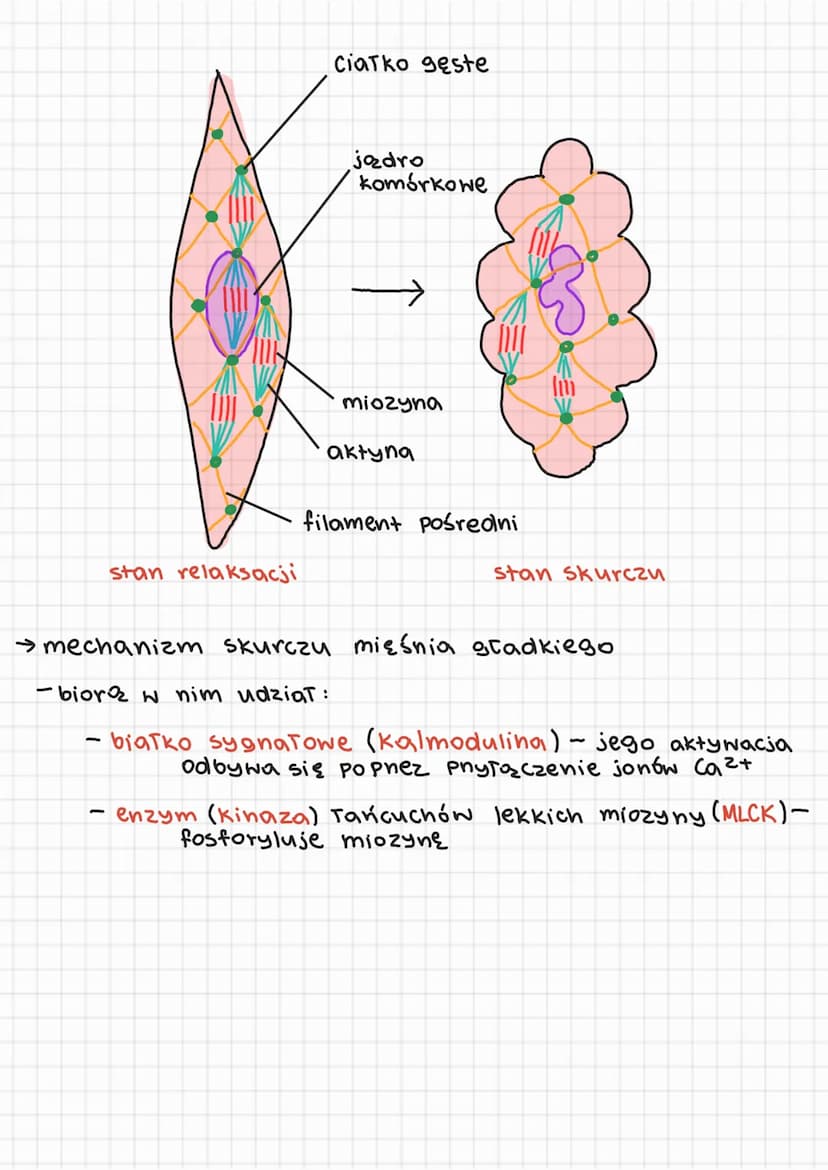 ciałko gęste
jądro
komórkowe
miozyna
aktyna
filament pośredni
stan relaksacji
stan skurczu
→ mechanizm skurczu mięśnia gładkiego
- biorą w nim udział:
- białko sygnałowe (kalmodulina) - jego aktywacja
odbywa się poprzez przyłączenie jonów Ca²⁺
- enzym (kinaza) łańcuchów lekkich miozyny (MLCK) -
fosforyluje miozynę